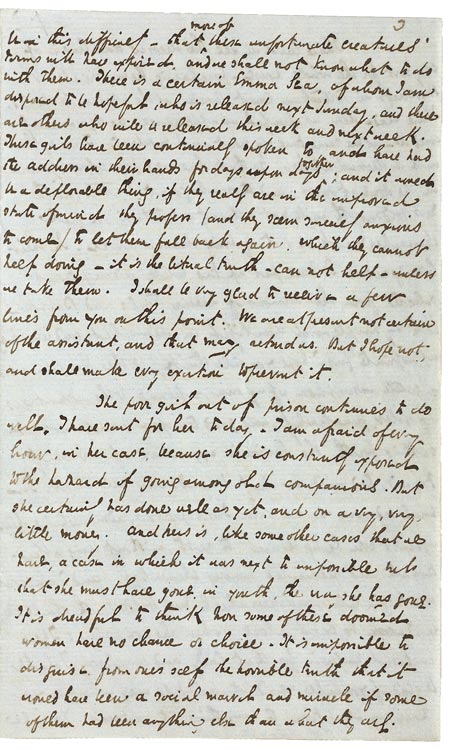 3
more of
is in this difficulty – that these unfortunate creatures'
terms will have expired, and we shall not know what to do
with them. There is a certain Emma Lea, of whom I am
disposed to be hopeful, who is released next Sunday, and there
are others who will be released this week and next week.
These girls have been continually spoken to, and have had
the address in their hands for days upon days together; and it would
be a deplorable thing if they really are in the improved
state of mind they profess (and they seem sincerely anxious
to come) to let them fall back again, which they cannot
help doing – it is the literal truth – can not help – unless
we take them. I shall be very glad to receive a few
lines from you on this point. We are at present not certain
of the assistant, and that may retard us. But I hope not,
and shall make every exertion to prevent it.
The poor girl out of prison continues to do
well. I have sent for her to day. I am afraid of every
hour, in her case, because she is constantly exposed
to the hazard of going among old companions. But
she certainly has done well as yet, and on a very, very,
little money. And hers is, like some other cases that we
have, a case in which it was next to impossible but
that she must have gone, in youth, the way she has gone.
It is dreadful to think how some of these doomed
women have no chance or choice. It is impossible to
disguise from one's self the horrible truth that it
would have been a social marvel and miracle if some
of them had been anything else than what they are.